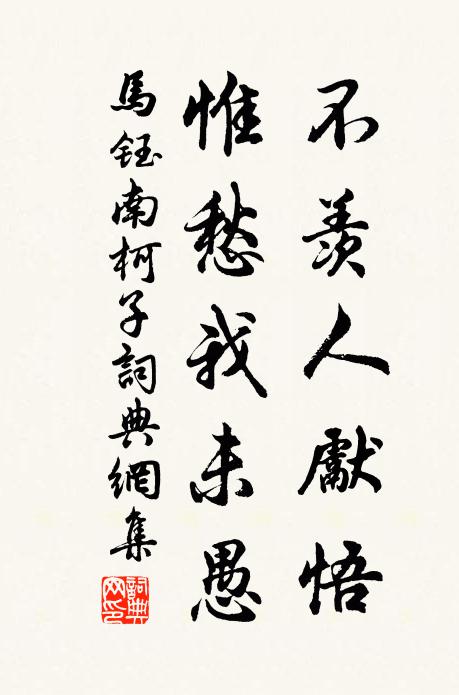 不羨人獻悟
惟愁我未愚
馬鈺南柯子詞典網集
詞典网印